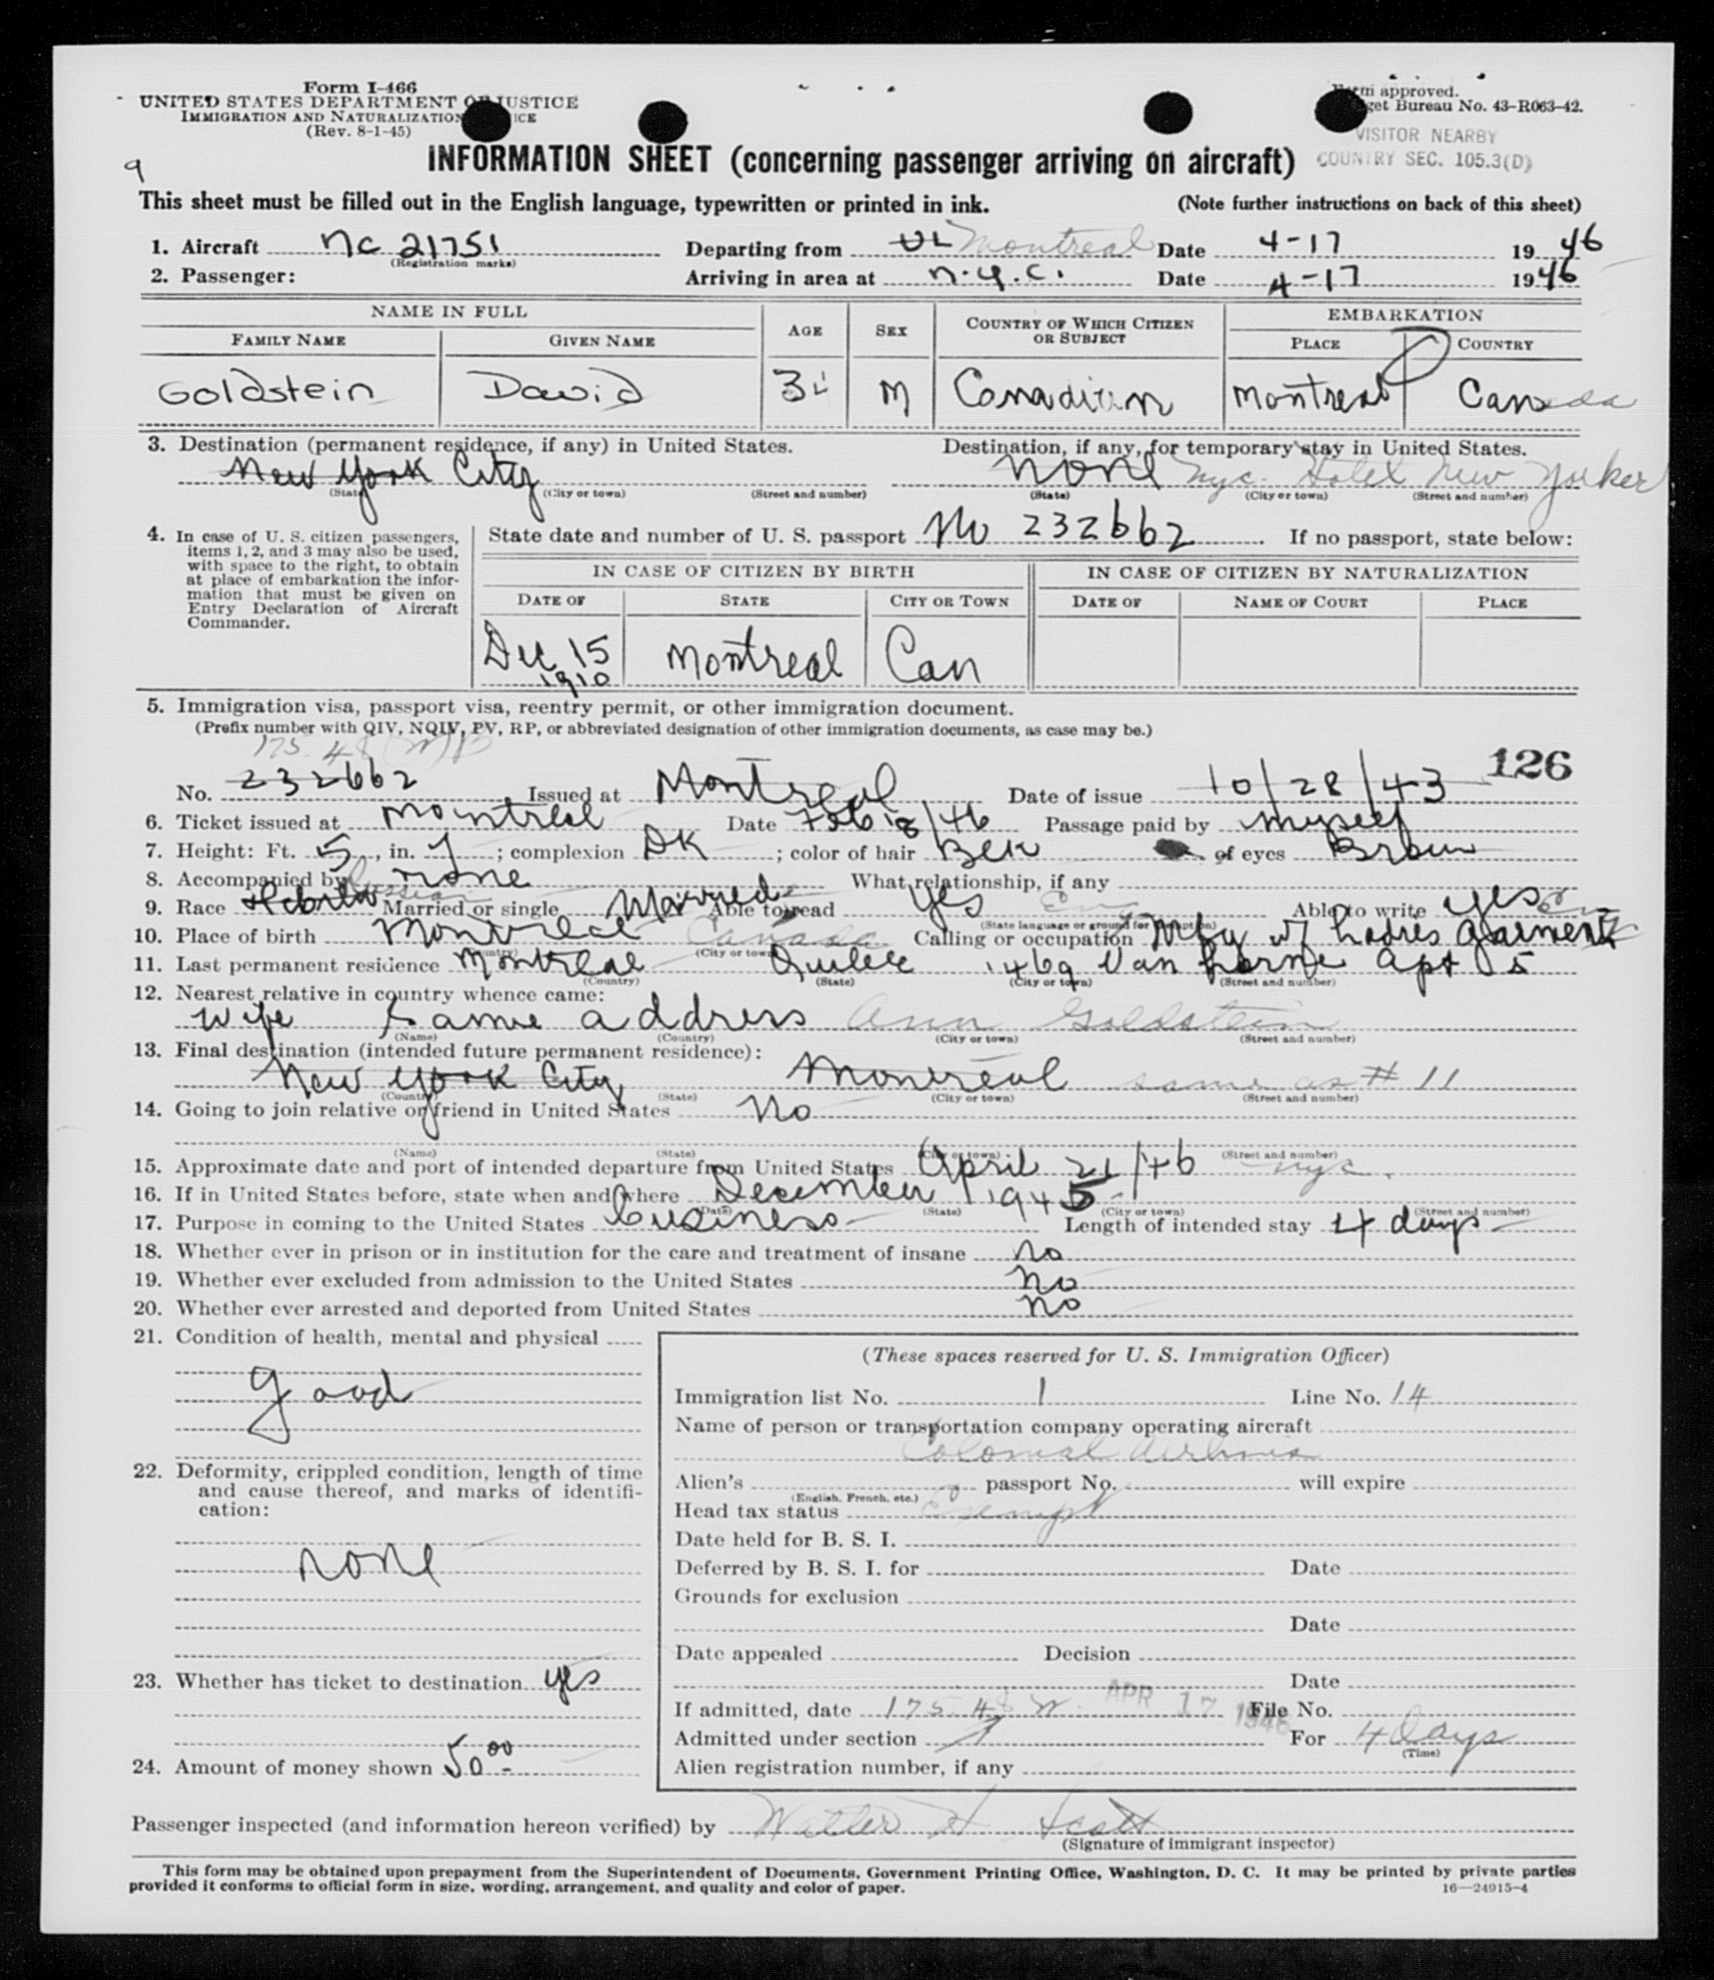 Form I-466
UNITED STATES DEPARTMENT OF JUSTICE
IMMIGRATION AND NATURALIZATION SERVICE
(Rev. 8-1-45)
Form approved.
Budget Bureau No. 43-R063-42.
VISITOR NEARBY
COUNTRY SEC. 105.3(D)
9
INFORMATION SHEET (concerning passenger arriving on aircraft)
This sheet must be filled out in the English language, typewritten or printed in ink. (Note further instructions on back of this sheet)
1. Aircraft NC 21751 Departing from UL Montreal Date 4-17 1946
(Registration marks)
2. Passenger: Arriving in area at N.Y.C. Date 4-17 1946
NAME IN FULL AGE SEX COUNTRY OF WHICH CITIZEN OR SUBJECT EMBARKATION
FAMILY NAME GIVEN NAME PLACE COUNTRY
Goldstein David M Canadian Montreal P Canada
3. Destination (permanent residence, if any) in United States. Destination, if any, for temporary stay in United States.
New York City None Nyc. Hotel New Yorker
(State) (City or town) (Street and number) (State) (City or town) (Street and number)
4. In case of U. S. citizen passengers, items 1, 2, and 3 may also be used, with space to the right, to obtain at place of embarkation the information that must be given on Entry Declaration of Aircraft Commander.
State date and number of U. S. passport No 232662 If no passport, state below:
IN CASE OF CITIZEN BY BIRTH IN CASE OF CITIZEN BY NATURALIZATION
DATE OF STATE CITY OR TOWN DATE OF NAME OF COURT PLACE
Dec 15 1910 Montreal Can
5. Immigration visa, passport visa, reentry permit, or other immigration document.
(Prefix number with QIV, NQIV, PV, RP, or abbreviated designation of other immigration documents, as case may be.)
175.48
126
No. 232662 Issued at Montreal Date of issue 10/28/43
6. Ticket issued at Montreal Date Feb 18/46 Passage paid by myself
7. Height: Ft. 5, in. 7; complexion DK; color of hair BLK of eyes Brown
8. Accompanied by none What relationship, if any
9. Race Hebrew Russian Married or single Married Able to read Yes En Able to write yes En
(State language or ground for exemption)
10. Place of birth Montreal Canada Calling or occupation Mfg of Ladies Garments
(Country) (City or town)
11. Last permanent residence Montreal Quebec 1469 Van Horne Apt 5
(Country) (State) (City or town) (Street and number)
12. Nearest relative in country whence came:
wife Same address Ann Goldstein
(Name) (Country) (City or town) (Street and number)
13. Final destination (intended future permanent residence):
New York City Montreal same as # 11
(Country) (State) (City or town) (Street and number)
14. Going to join relative or friend in United States No
(Name) (State) (City or town) (Street and number)
15. Approximate date and port of intended departure from United States April 21/46 nyc.
16. If in United States before, state when and where December 1945
(Date) (State) (City or town) (Street and number)
17. Purpose in coming to the United States business Length of intended stay 4 days
18. Whether ever in prison or in institution for the care and treatment of insane no
19. Whether ever excluded from admission to the United States no
20. Whether ever arrested and deported from United States no
21. Condition of health, mental and physical
good
22. Deformity, crippled condition, length of time and cause thereof, and marks of identification:
none
23. Whether has ticket to destination yes
24. Amount of money shown 50 00
(These spaces reserved for U. S. Immigration Officer)
Immigration list No. 1 Line No. 14
Name of person or transportation company operating aircraft
Colonial Airlines
Alien's passport No. will expire
(English, French, etc.)
Head tax status Exempt
Date held for B. S. I.
Deferred by B. S. I. for Date
Grounds for exclusion
Date
Date appealed Decision
Date
If admitted, date 175.48 APR 17 1946 File No.
Admitted under section For 4 Days
(Time)
Alien registration number, if any
Passenger inspected (and information hereon verified) by Walter H Scott
(Signature of immigrant inspector)
This form may be obtained upon prepayment from the Superintendent of Documents, Government Printing Office, Washington, D. C. It may be printed by private parties
provided it conforms to official form in size, wording, arrangement, and quality and color of paper. 16—24915-4